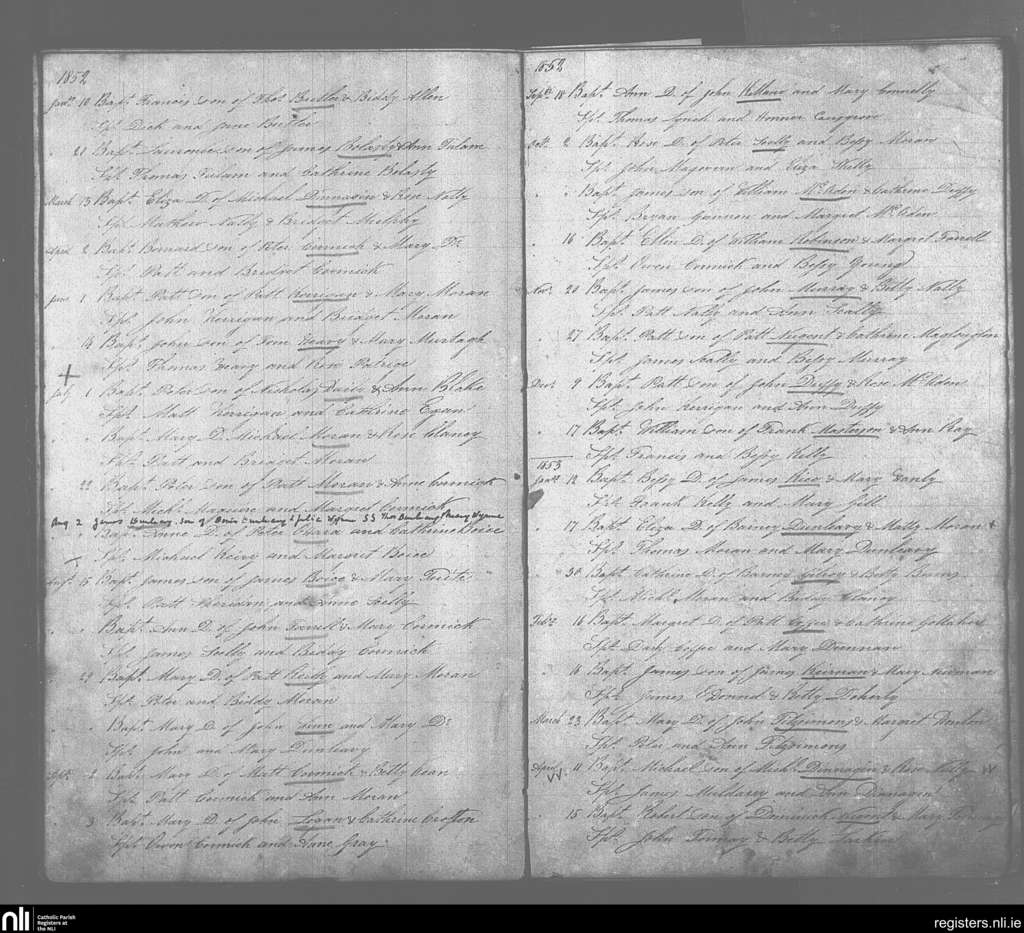 1852
Jany. 10 Bapt. Francis son of Thos. Butler & Biddy Allen
Spt. Dick and Jane Butler
" 21 Bapt. Laurence son of James & Ann Fulam
Spt. Thomas Fulam and Cathrine
March 13 Bapt. Eliza D. of Michael Dinnavin & Rose Nally
Spt. Mathew Nally & Bridget
April 2 Bapt. Bernard son of Peter Cormick & Mary
Spt. Patt and Bridget Cormick
June 1 Bapt. Patt son of Patt Kerrigan & Mary Moran
Spt. John Kerrigan and Bridget Moran
" Bapt. John son of Tom Geavy & Mary Murtagh
Spt. Thomas Geavy and Rose
July 1 Bapt. Peter son of Nicholas Davis & Ann Blake
Spt. Matt Kerrigan and Cathrine Egan
" " Bapt. Mary D. Michael Moran & Rose Clancy
Spt. Patt and Bridget Moran
" 22 Bapt. Peter son of Patt Moran & Anne Cormick
Spt. Michl. Maguire and Margret Cormick
Aug 2 James Dunleavy son of & Julia Wynne SS Thos Dunleavy & Mary Wynne
" " Bapt. Anne D. of Peter and Cathrine Boice
Spt. Michael Geavy and Margret Boice
Augt. 15 Bapt. James son of James Boice & Mary
Spt. Patt Sheridan and Anne Kelly
" Bapt. Ann D. of John Farrell & Mary Cormick
Spt. James Scally and Biddy Cormick
" 29 Bapt. Mary D. of Patt Reily and Mary Moran
Spt. Peter and Biddy Moran
Bapt. Mary D. of John Finn and Mary Do.
Spt. John and Mary Dunleavy
Sept. 2 Bapt. Mary D. of Matt Cormick & Betty
Spt. Patt Cormick and Ann Moran
" 3 Bapt. Mary D. of John Logan & Cathrine Crofton
Spt. Owen Cormick and Anne Gray
1852
Sept. 18 Bapt. Ann D. of John and Mary Connelly
Spt. Thomas Lynch and Honner Cusgrove
Oct. 2 Bapt. Rose D. of Peter Scally and Bessy Moran
Spt. John and Eliza Skelly
" " Bapt. James son of William McAden & Cathrine Duffy
Spt. Bryan Gannon and Margret McAden
" 16 Bapt. Ellen D. of William Robinson & Margret Farrell
Spt. Owen Cormick and Bessy Young
Nov. 20 Bapt. James son of John Murray & Betty Nally
Spt. Patt Nally and Ann Scally
" 27 Bapt. Patt son of Patt Nugent & Cathrine
Spt. James Scally and Bessy Murray
Decr. 9 Bapt. Patt son of John Duffy & Rose McAden
Spt. John Kerrigan and Ann Duffy
" 17 Bapt. William son of Frank Masterson & Ann Ray
Spt. Francis and Bessy Kelly
1853
Jany. 12 Bapt. Bessy D. of James Rice & Mary Ganly
Spt. Frank Kelly and Mary Gill
" 17 Bapt. Eliza D. of Barney Dunleavy & Matty Moran
Spt. Thomas Moran and Mary Dunleavy
" 30 Bapt. Cathrine D. of Barney Gilroy & Betty Burns
Spt. Michl. Moran and Biddy Clancy
Feby. 16 Bapt. Margret D. of Patt & Cathrine
Spt. and Mary Drennan
" 16 Bapt. James son of James Keirnan & Mary Keirnan
Spt. James & Betty Doherty
March 23 Bapt. Mary D. of John Fitzsimons & Margret
Spt. Peter and Ann Fitzsimons
April 11 Bapt. Michael son of Michl. Dinnavin & Rose Nally
Spt. James Muldarry and Ann Dinnavin
" 15 Bapt. Robert son of Dominick & Mary
Spt. John & Betty
nli Catholic Parish
Registers at
the NLI
registers.nli.ie